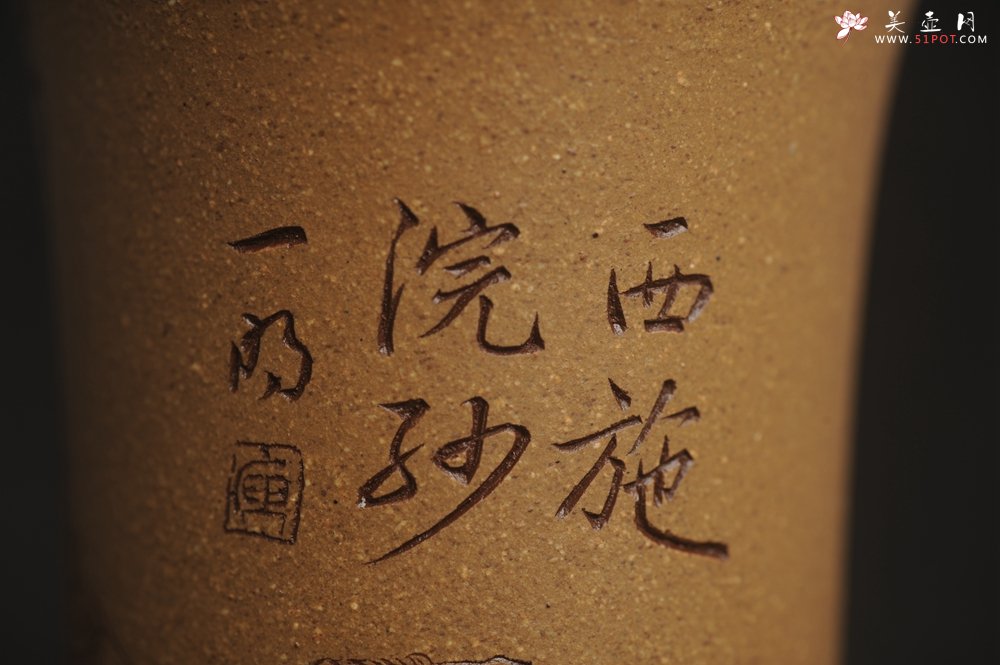 西施
浣纱
一明
美壶网
WWW.51POT.COM